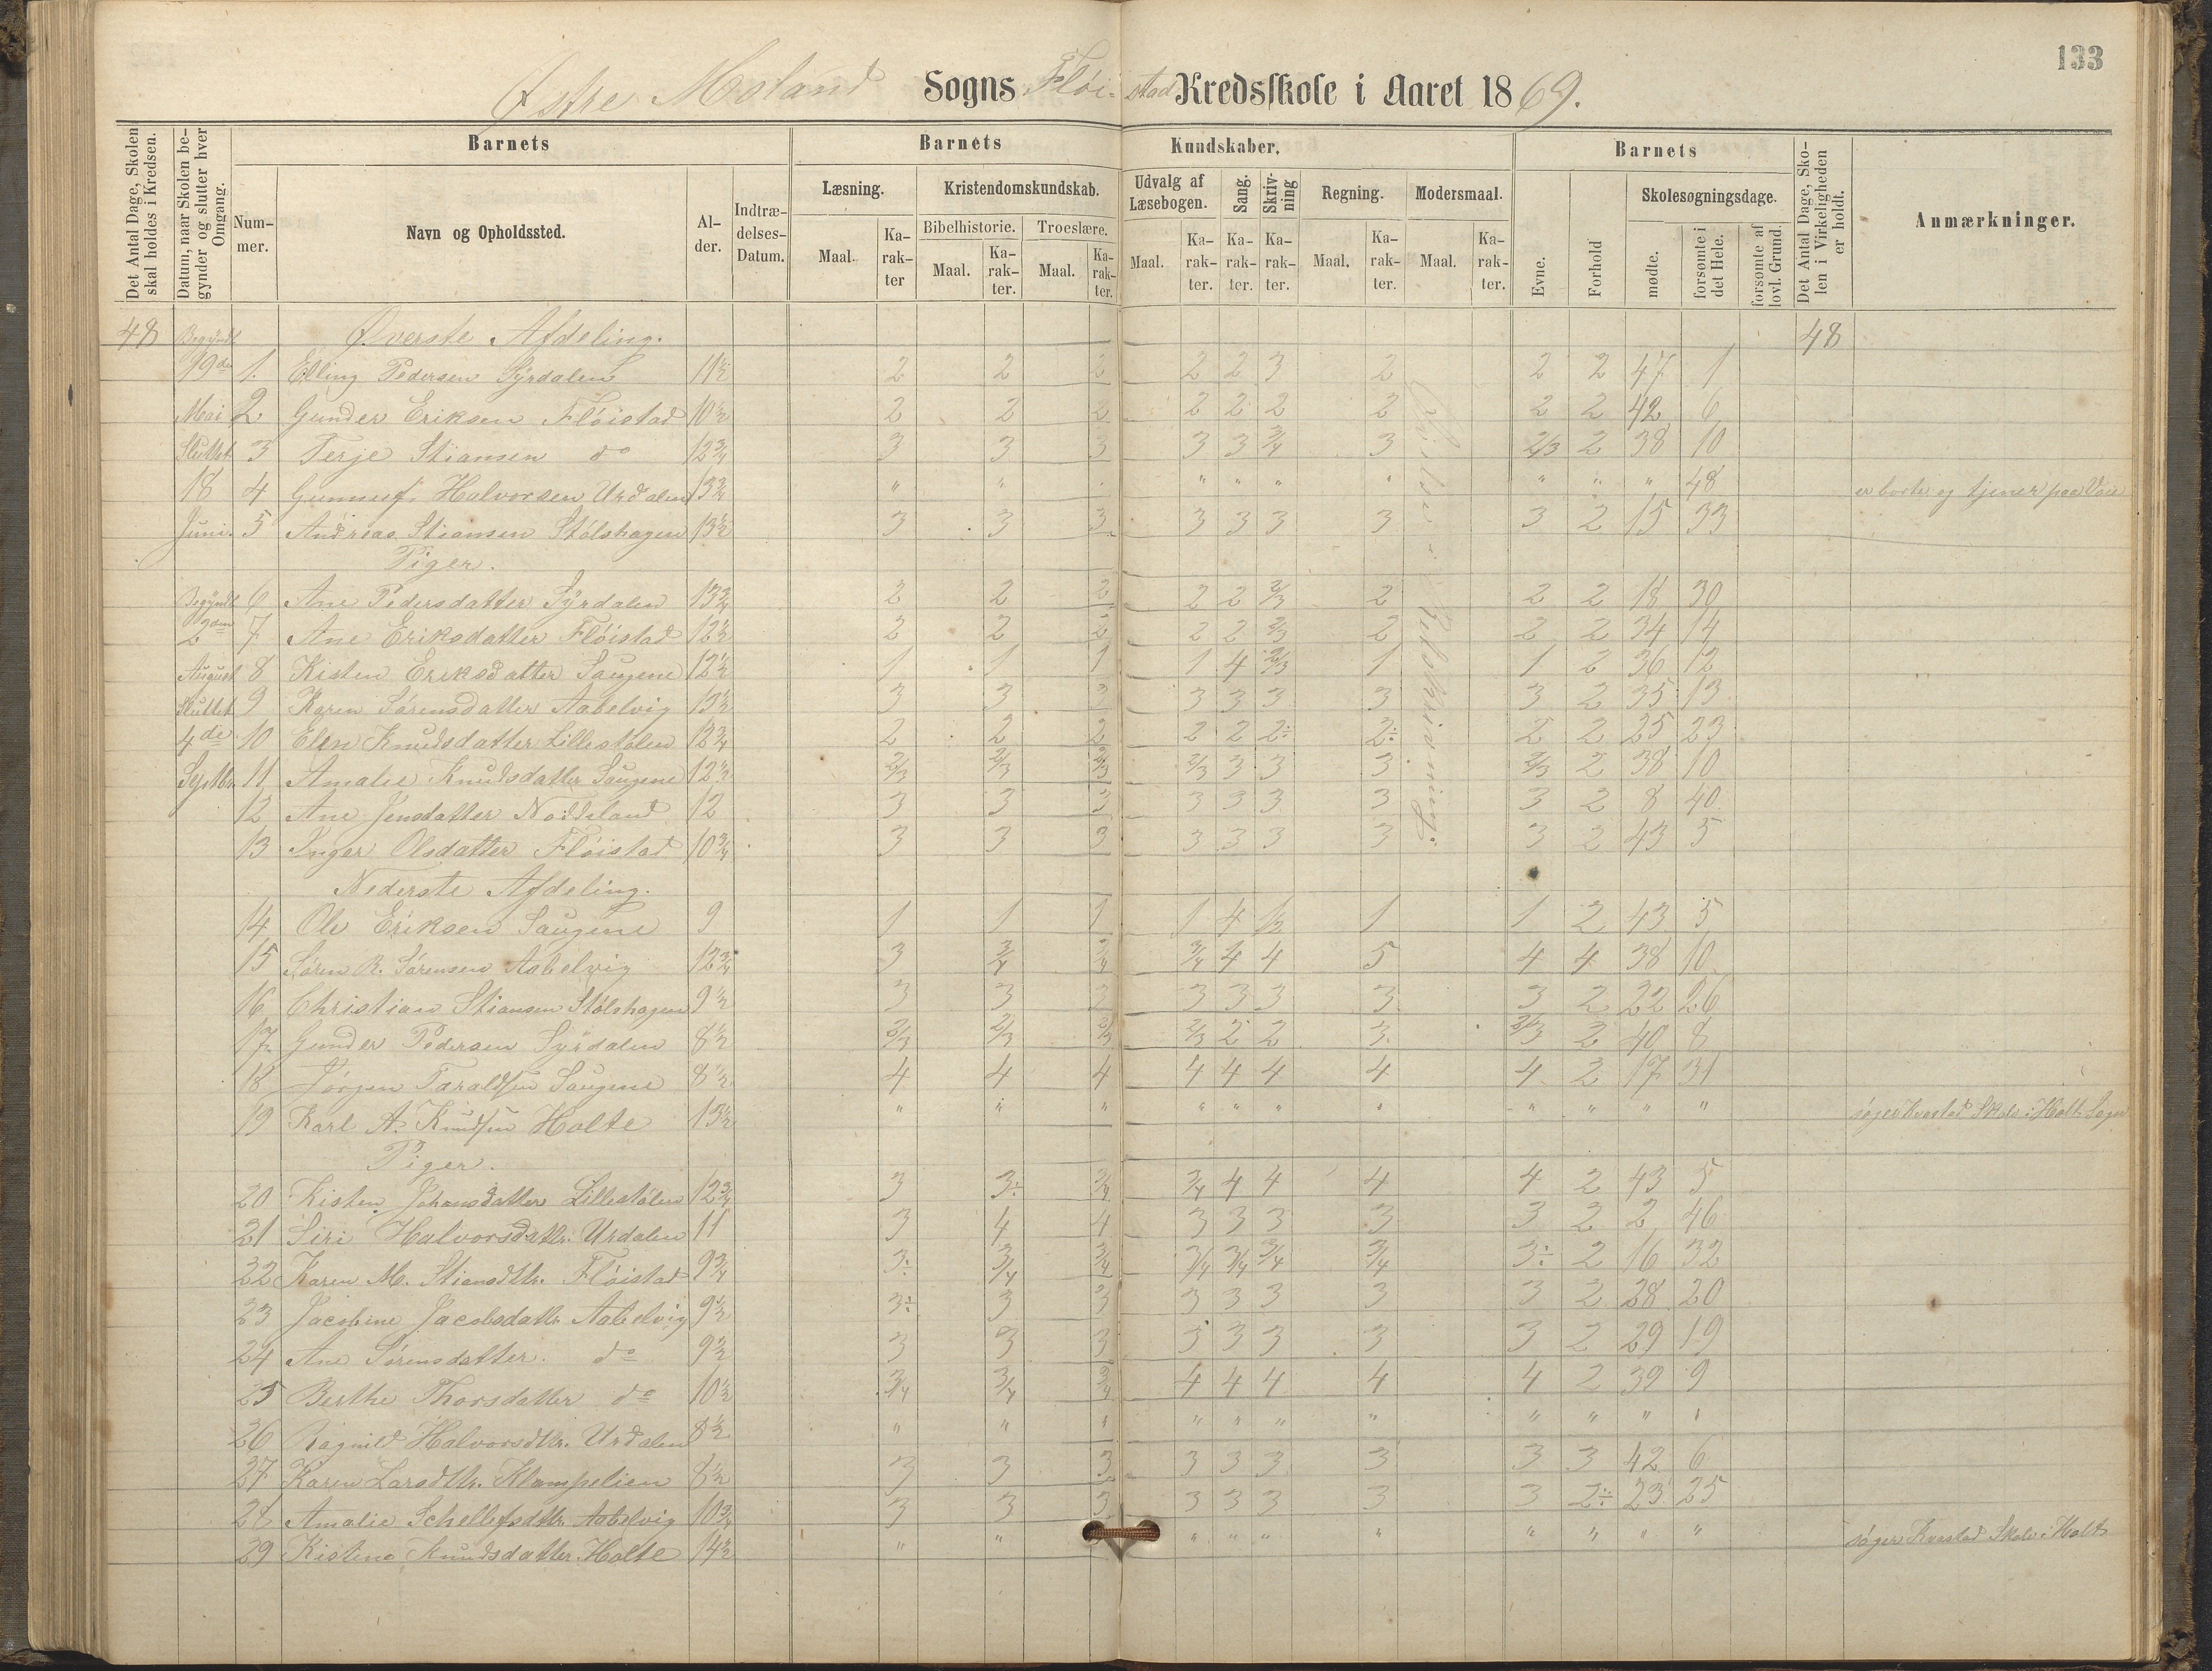 133
Østre Moland Sogns Fløistad Kredsskole i Aaret 1869.
Det Antal Dage, Skolen skal holdes i Kredsen.
Datum, naar Skolen begynder og slutter hver Omgang.
Barnets
Nummer.
Navn og Opholdssted.
Alder.
Indtrædelses-Datum.
Barnets Kundskaber.
Læsning.
Maal.
Karakter
Kristendomskundskab.
Bibelhistorie.
Maal.
Karakter.
Troeslære.
Maal.
Karakter.
Udvalg af Læsebogen.
Maal.
Karakter.
Sang.
Karakter.
Skrivning
Karakter.
Regning.
Maal.
Karakter.
Modersmaal.
Maal.
Karakter.
Barnets
Evne.
Forhold
Skolesøgningsdage.
mødte.
forsømte i det Hele.
forsømte af lovl. Grund.
Det Antal Dage, Skolen i Virkeligheden er holdt.
Anmærkninger.
48 Begyndt Øverste Afdeling. 48
19de 1. Elling Pedersen Syrdalen 11½ 2 2 2 2 2 3 2 2 2 47 1
Mai 2 Gunder Eriksen Fløistad 10½ 2 2 2 2 2 2 2 2 2 42 6
Sluttet 3 Terje Stiansen do 12¾ 3 3 3 3 3 3/4 3 2/3 2 38 10
18 4 Gunnuf Halvorsen Urdalen 13¾ " " " " " " " " " " 48 er borte og tjener paa
Juni 5 Andreas Stiansen Stølshagen 13½ 3 3 3 3 3 3 3 3 2 15 33
Piger.
Begyndt 6 Ane Pedersdatter Syrdalen 13¾ 2 2 2 2 2 2/3 2 2 2 18 30
2den 7 Ane Eriksdatter Fløistad 12½ 2 2 2 2 2 2/3 2 2 2 34 14
August 8 Kisten Eriksdatter Saugene 12½ 1 1 1 1 4 2/3 1 1 2 36 12
Sluttet 9 Karen Sørensdatter Aabelvig 13½ 3 3 3 3 3 3 3 3 2 35 13
4de 10 Elen Knudsdatter Lillestølen 12¾ 2 2 2 2 2 2÷ 2÷ 2 2 25 23
Septbr. 11 Amalie Knudsdatter Saugene 12½ 2/3 2/3 2/3 2/3 3 3 3 2/3 2 38 10
12 Ane Jensdatter 12 3 3 3 3 3 3 3 3 2 8 40
13 Inger Olsdatter Fløistad 10¾ 3 3 3 3 3 3 3 3 2 43 5
Nederste Afdeling.
14 Ole Eriksen Saugene 9 1 1 1 1 4 1/2 1 1 2 43 5
15 Søren R. Sørensen Aabelvig 12¾ 3 3/4 3/4 3/4 4 4 5 4 4 38 10
16 Christian Stiansen Stølshagen 9½ 3 3 2 3 3 3 3 3 2 22 26
17 Gunder Pedersen Syrdalen 8½ 2/3 2/3 2/3 2/3 2 2 3 2/3 2 40 8
18 Jørgen Taraldsen Saugene 8½ 4 4 4 4 4 4 4 4 2 17 31
19 Karl A. Knudsen Holte 13½ " " " " " " " " " " " søger Kvastad Skole i Holt Sogn
Piger.
20 Kisten Johansdatter Lillestølen 12¾ 3 3÷ 3/4 3/4 4 4 4 4 2 43 5
21 Siri Halvorsdattr. Urdalen 11 3 4 4 3 3 3 3 3 2 2 46
22 Karen M. Stiansdtr. Fløistad 9¾ 3÷ 3/4 3/4 3/4 3/4 3/4 3/4 3÷ 2 16 32
23 Jacobine Jacobsdattr. Aabelvig 9½ 3÷ 3 3 3 3 3 3 3 2 28 20
24 Ane Sørensdatter. do 9½ 3 3 3 3 3 3 3 3 2 29 19
25 Berthe Thorsdatter do 10½ 3/4 3/4 3/4 4 4 4 4 4 2 39 9
26 Ragnild Halvorsdtr. Urdalen 8½ " " " " " " " " " " "
27 Karen Larsdtr. Klampelien 8½ 3 3 3 3 3 3 3 3 3 42 6
28 Amalie Schellefsdtr. Aabelvig 10¾ 3 3 3 3 3 3 3 3 2÷ 23 25
29 Kistine Knudsdatter Holte 14½ " " " " " " " " " " søger Kvastad Skole i Holt